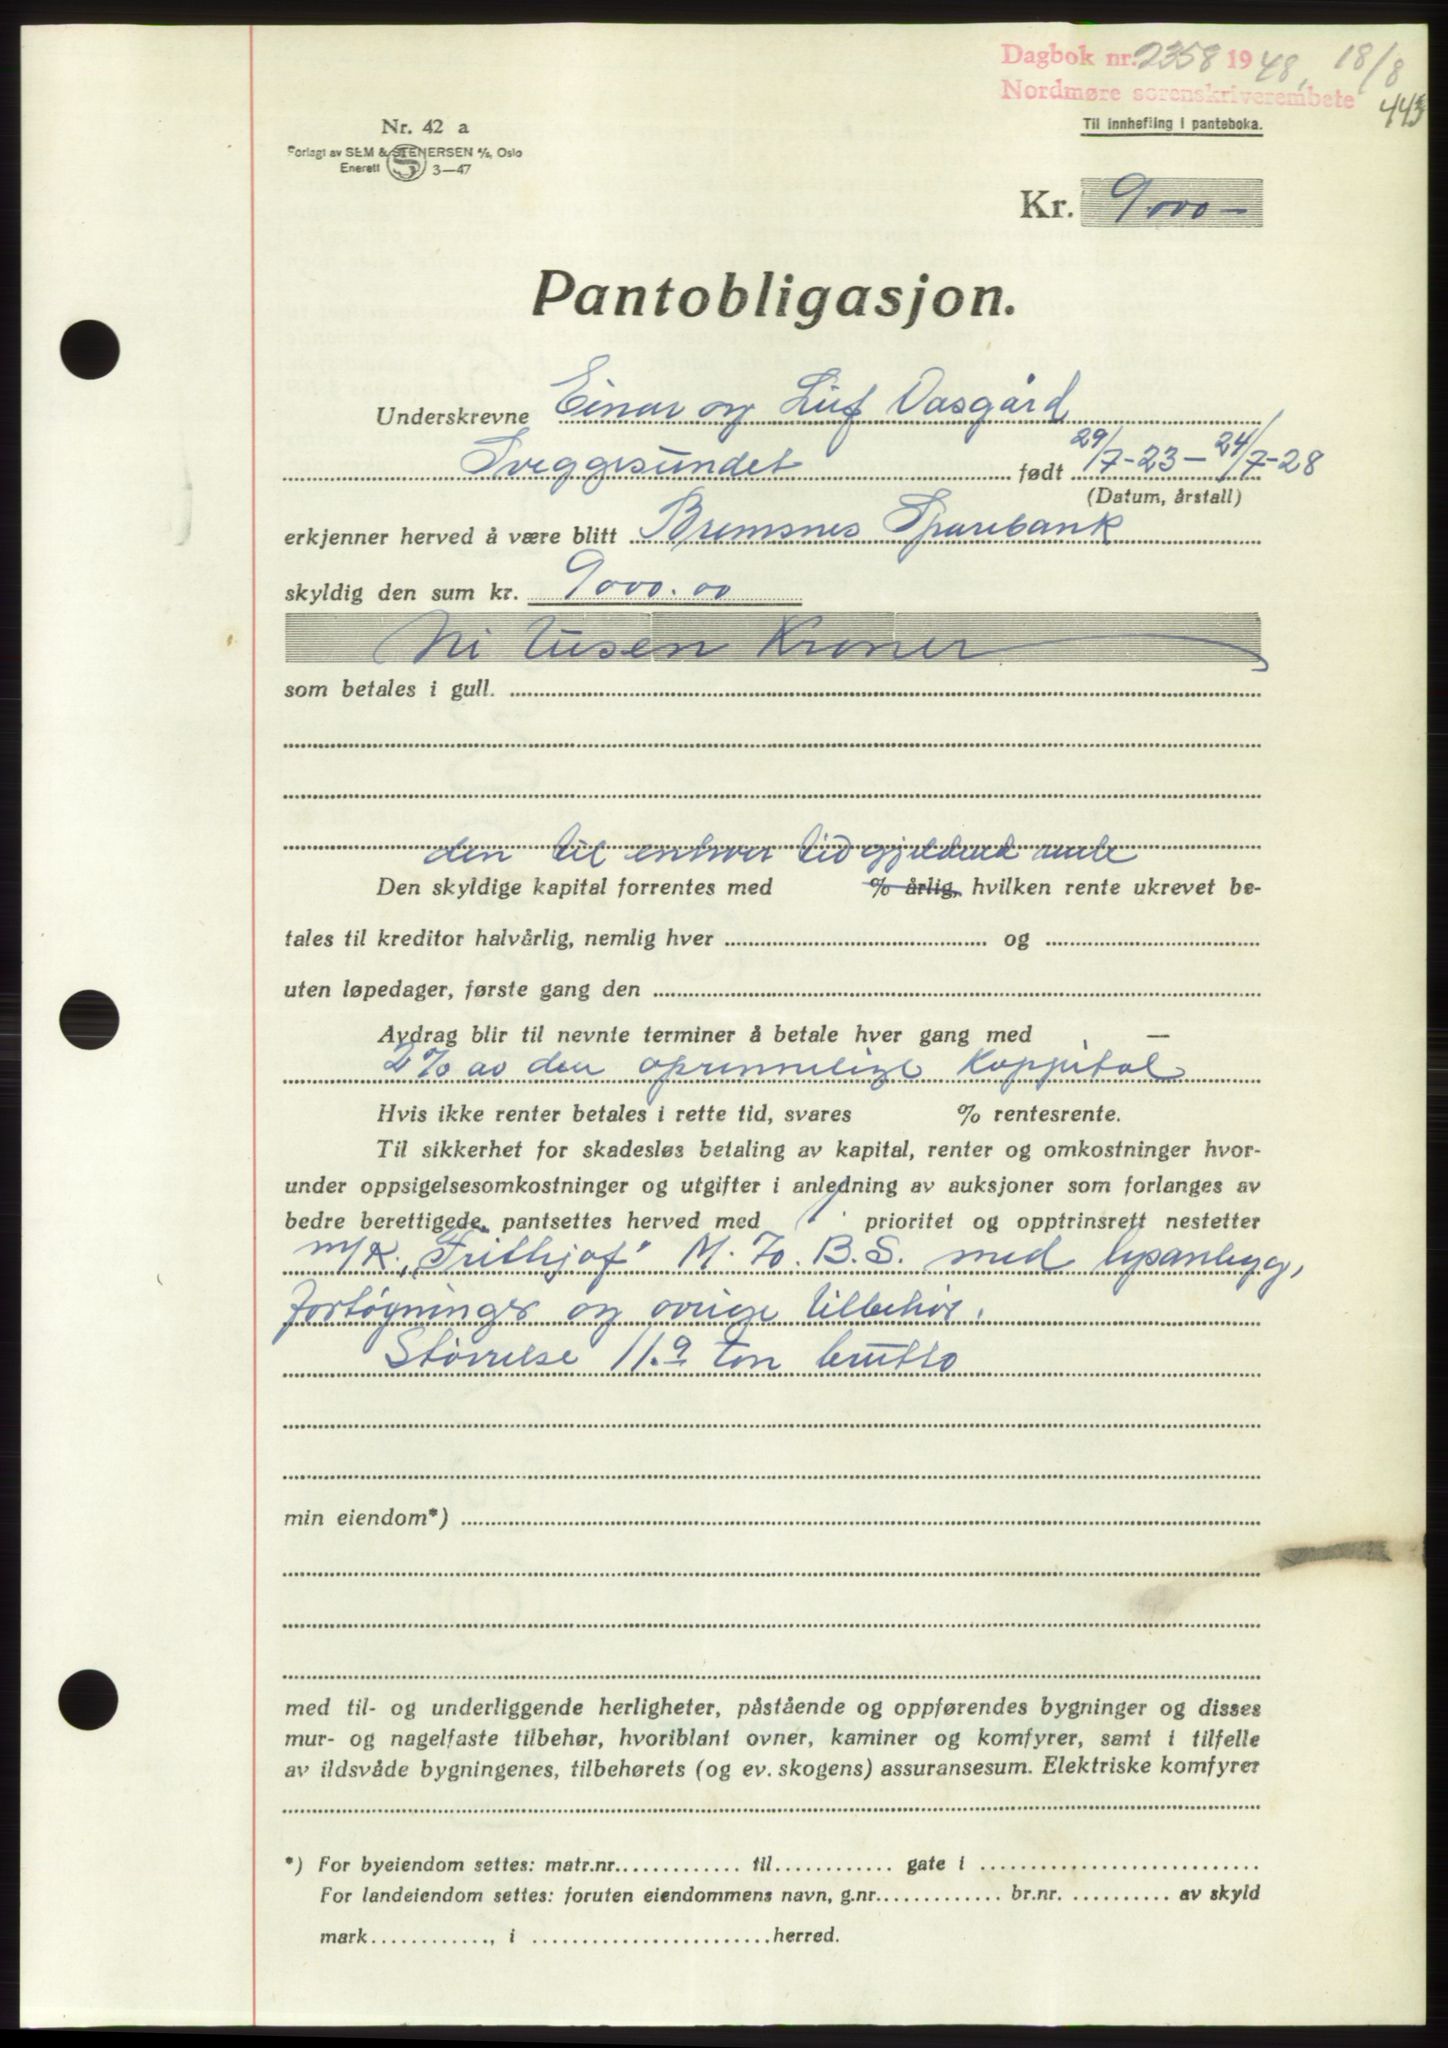 Dagbok nr. 2358 1948, 18/8
Nordmøre sorenskriverembete 443
Til innhefting i panteboka.
Nr. 42 a
Forlagt av SEM & STENERSEN A/S, Oslo
Enerett S 3—47
Kr. 9000 —
Pantobligasjon.
Underskrevne Einar og Leif Vasgård
Sveggesundet født 29/7-23 — 24/7-28
(Datum, årstall)
erkjenner herved å være blitt Bremsnes Sparebank
skyldig den sum kr. 9000.00
Ni tusen Kroner
som betales i gull.
den til enhver tid gjeldend rente
Den skyldige kapital forrentes med % årlig, hvilken rente ukrevet be-
tales til kreditor halvårlig, nemlig hver og
uten løpedager, første gang den
Avdrag blir til nevnte terminer å betale hver gang med —
2% av den oprinnelige Kappital
Hvis ikke renter betales i rette tid, svares % rentesrente.
Til sikkerhet for skadesløs betaling av kapital, renter og omkostninger hvor-
under oppsigelsesomkostninger og utgifter i anledning av auksjoner som forlanges av
bedre berettigede, pantsettes herved med 1. prioritet og opptrinsrett nestetter
m/k. „Frithjof" M. 70. B.S. med
fortøgninger og øvrige tilbehør.
Størrelse 11.9 ton brutto
min eiendom*)
med til- og underliggende herligheter, påstående og oppførendes bygninger og disses
mur- og nagelfaste tilbehør, hvoriblant ovner, kaminer og komfyrer, samt i tilfelle
av ildsvåde bygningenes, tilbehørets (og ev. skogens) assuransesum. Elektriske komfyrer
*) For byeiendom settes: matr.nr. til gate i
For landeiendom settes: foruten eiendommens navn, g.nr. br.nr. av skyld
mark , i herred.